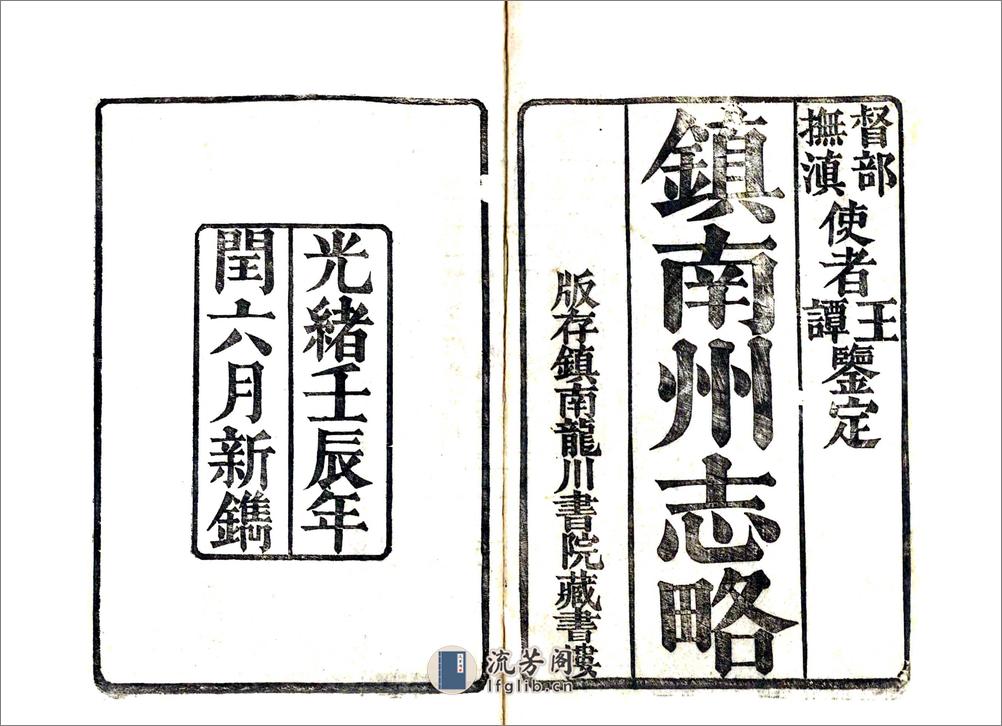 督部撫滇使者王譚鑒定
鎮南州志略
版存鎮南龍川書院藏書樓
光緒壬辰年
閏六月新鐫
流芳阁
lfglib.cn